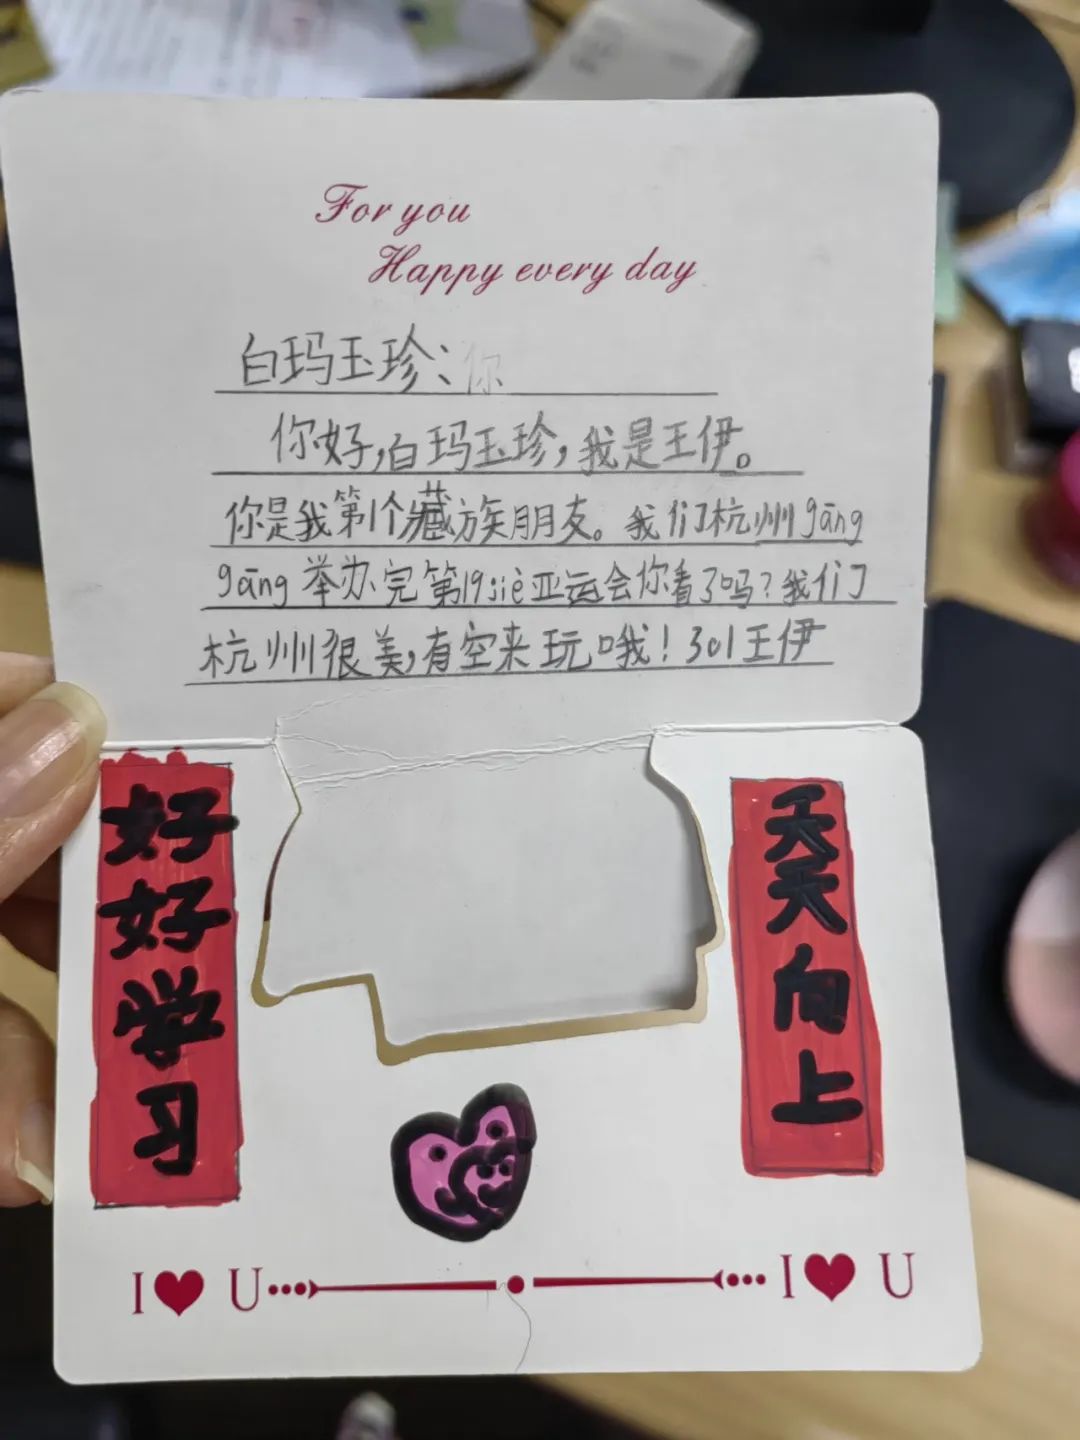 For you
Happy every day
白玛玉珍：你
你好，白玛玉珍，我是王伊。
你是我第1个藏族朋友。我们杭州gāng
gāng举办完第19jiè亚运会你看了吗？我们
杭州很美，有空来玩哦！301王伊
好好学习
天天向上
I ❤ U I ❤ U